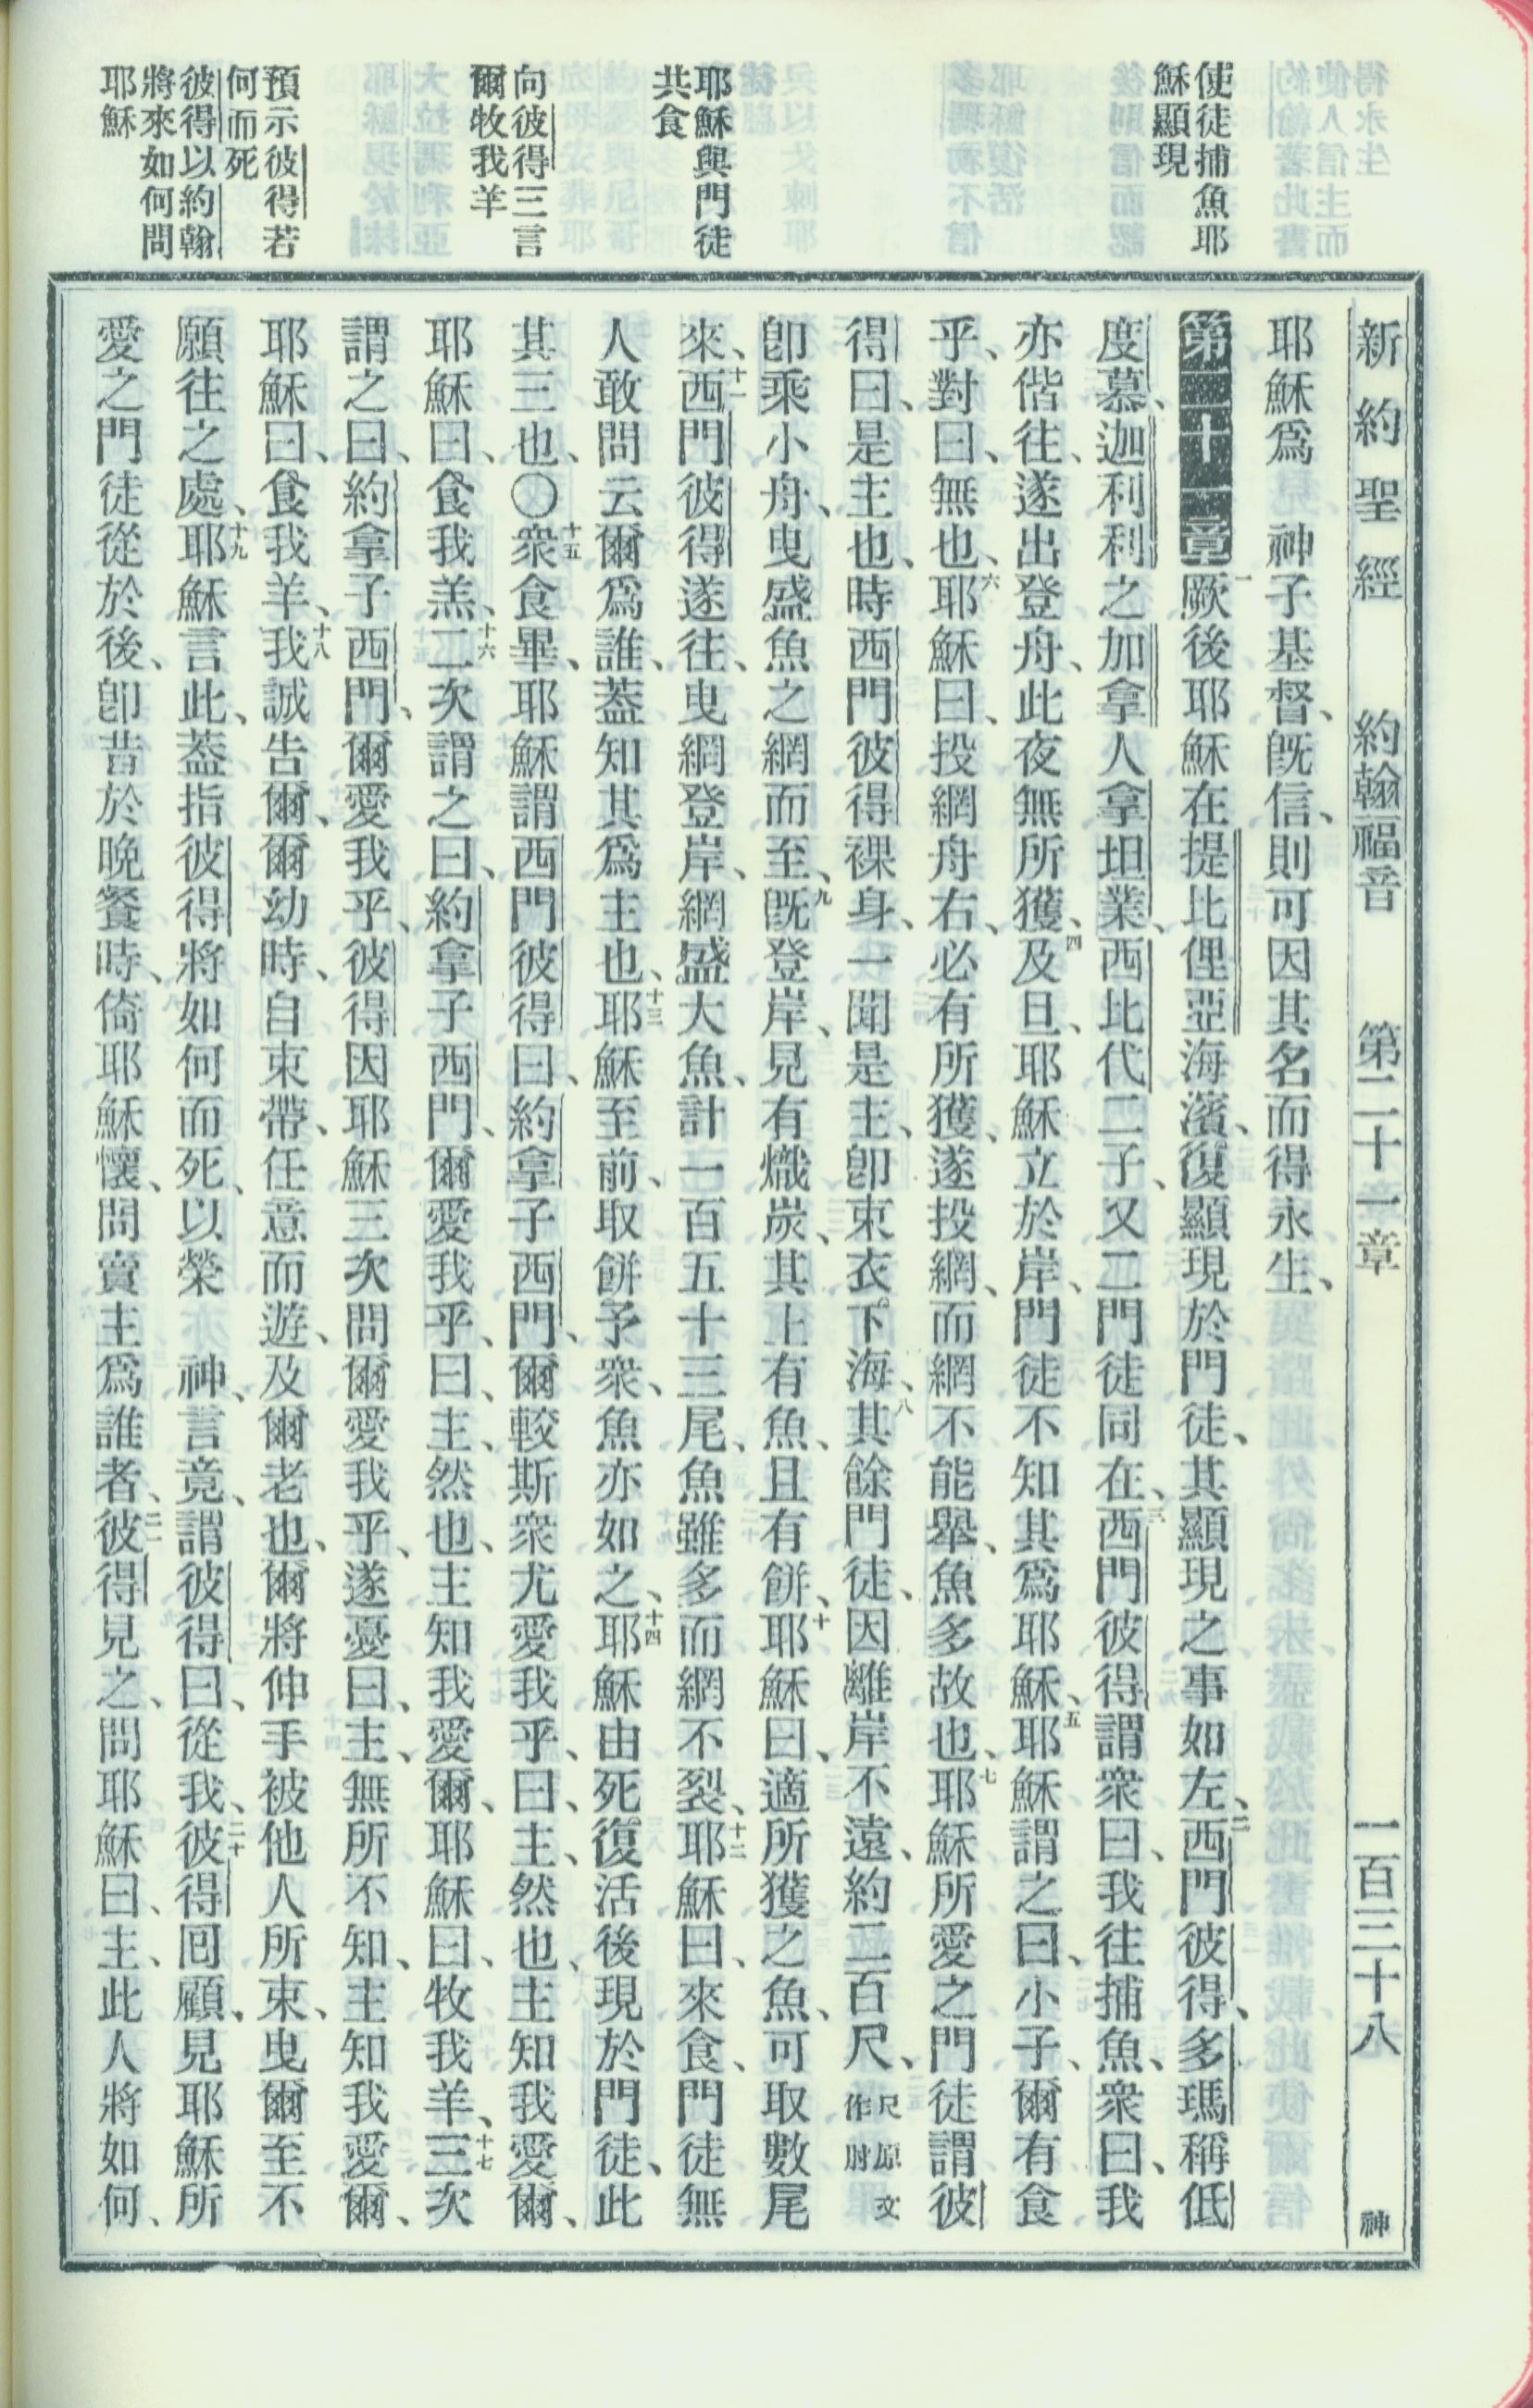 新約聖經　約翰福音　第二十一章　一百三十八　神
使徒捕魚耶
穌顯現
耶穌與門徒
共食
向彼得三言
爾牧我羊
預示彼得若
何而死
彼得以約翰
將來如何問
耶穌
耶穌爲　神子基督、旣信、則可因其名而得永生、
第二十一章一厥後耶穌在提比俚亞海濱、復顯現於門徒、其顯現之事如左、二西門彼得、多瑪稱低
度慕、迦利利之加拿人拿坦業、西比代二子、又二門徒同在、三西門彼得謂衆曰、我往捕魚、衆曰、我
亦偕往、遂出登舟、此夜無所獲、四及旦、耶穌立於岸、門徒不知其爲耶穌、五耶穌謂之曰、小子、爾有食
乎、對曰、無也、六耶穌曰、投網舟右、必有所獲、遂投網、而網不能舉、魚多故也、七耶穌所愛之門徒謂彼
得曰、是主也、時西門彼得裸身、一聞是主、卽束衣下海、八其餘門徒、因離岸不遠、約二百尺、尺原文作肘
卽乘小舟、曳盛魚之網而至、九旣登岸、見有熾炭、其上有魚、且有餅、十耶穌曰、適所獲之魚、可取數尾
來、十一西門彼得遂往、曳網登岸、網盛大魚、計一百五十三尾、魚雖多而網不裂、十二耶穌曰、來食、門徒無
人敢問云爾爲誰、蓋知其爲主也、十三耶穌至前、取餅予衆、魚亦如之、十四耶穌由死復活後現於門徒、此
其三也、〇十五衆食畢、耶穌謂西門彼得曰、約拿子西門、爾較斯衆尤愛我乎、曰、主、然也、主知我愛爾、
耶穌曰、食我羔、十六二次謂之曰、約拿子西門、爾愛我乎、曰、主、然也、主知我愛爾、耶穌曰、牧我羊、十七三次
謂之曰、約拿子西門、爾愛我乎、彼得因耶穌三次問爾愛我乎、遂憂曰、主、無所不知、主知我愛爾、
耶穌曰、食我羊、十八我誠告爾、爾幼時、自束帶、任意而遊、及爾老也、爾將伸手被他人所束、曳爾至不
願往之處、十九耶穌言此、蓋指彼得將如何而死、以榮　神、言竟、謂彼得曰、從我、二十彼得回顧、見耶穌所
愛之門徒從於後、卽昔於晚餐時、倚耶穌懷、問賣主爲誰者、二一彼得見之、問耶穌曰、主、此人將如何、